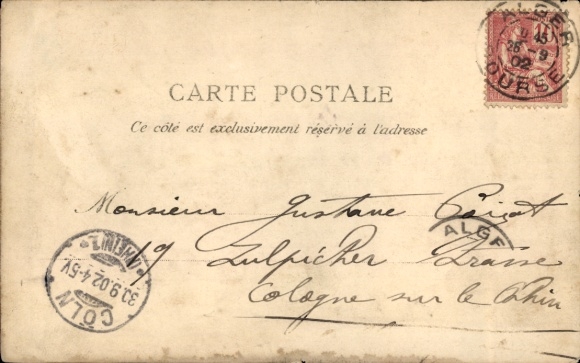 ALGER
45
26 - 9
02
BOURSE
CARTE POSTALE
Ce côté est exclusivement réservé à l'adresse
Monsieur Gustave
ALGE
19 Zulpicher Strasse
Cologne sur le Rhin
CÖLN
30.9.02.4-5V.